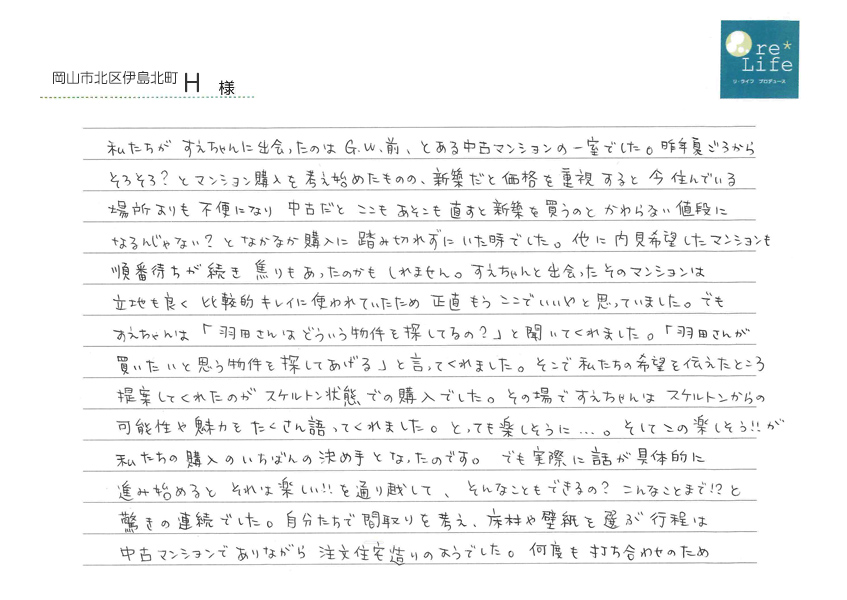 岡山市北区伊島北町 H 様
re*
Life
リ・ライフ プロデュース
私たちが すえちゃんに出会ったのは G.W.前、とある中古マンションの一室でした。昨年夏ごろから
そろそろ？とマンション購入を考え始めたものの、新築だと価格を重視すると今住んでいる
場所よりも不便になり 中古だと ここも あそこも直すと新築を買うのと かわらない値段に
なるんじゃない？と なかなか購入に踏み切れずにいた時でした。他に内見希望したマンションも
順番待ちが続き 焦りもあったのかも しれません。すえちゃんと出会ったそのマンションは
立地も良く 比較的キレイに使われていたため 正直もう ここでいいやと思っていました。でも
すえちゃんは「羽田さんはどういう物件を探してるの？」と聞いてくれました。「羽田さんが
買いたいと思う物件を探してあげる」と言ってくれました。そこで私たちの希望を伝えたところ
提案してくれたのが スケルトン状態での購入でした。その場ですえちゃんは スケルトンからの
可能性や魅力をたくさん語ってくれました。とっても楽しそうに…。そしてこの楽しそう!!が
私たちの購入のいちばんの決め手となったのです。 でも実際に話が具体的に
進み始めると それは楽しい!!を通り越して、そんなこともできるの？こんなことまで!?と
驚きの連続でした。自分たちで間取りを考え、床材や壁紙を選ぶ行程は
中古マンションでありながら 注文住宅造りのようでした。何度も打ち合わせのため